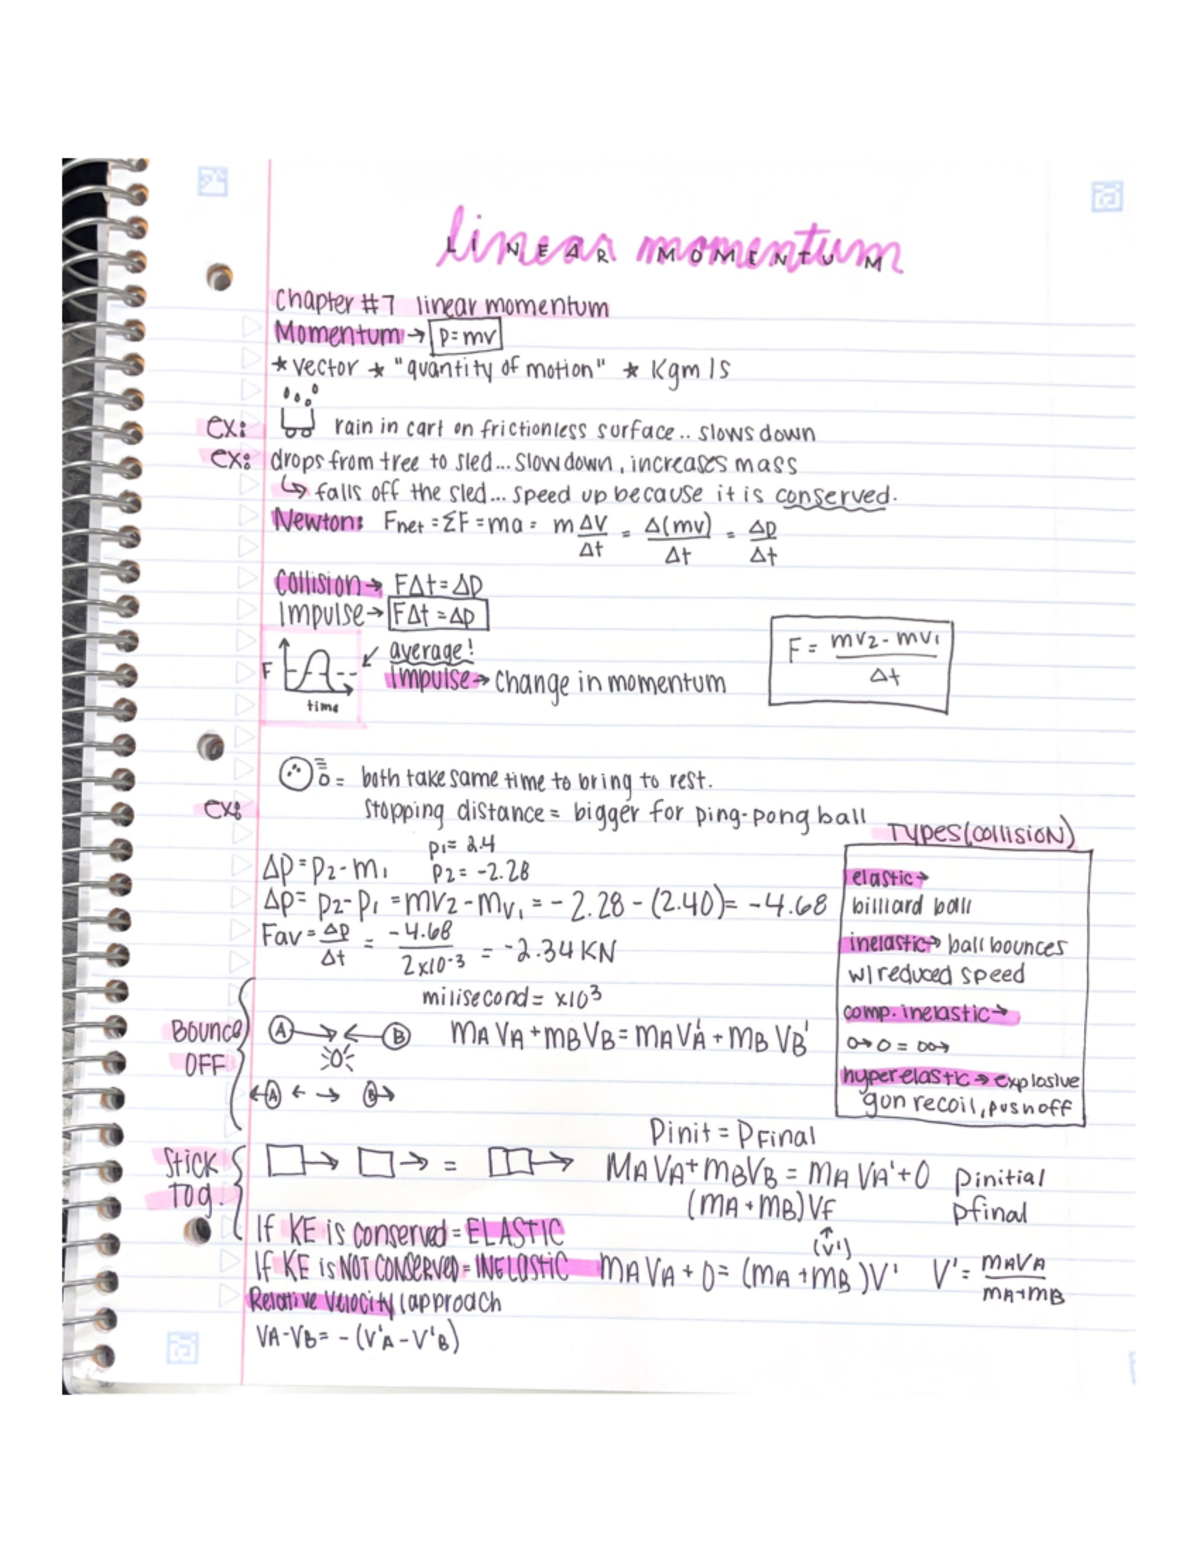 linear momentum
LINEAR MOMENTUM
Chapter #7 linear momentum
Momentum → p=mv
* vector * "quantity of motion" * Kgm/s
ex: rain in cart on frictionless surface.. slows down
ex: drops from tree to sled... slow down, increases mass
↳ falls off the sled... speed up because it is conserved.
Newton: Fnet = ΣF = ma = mΔV/Δt = Δ(mv)/Δt = Δp/Δt
Collision → FΔt = Δp
Impulse → FΔt = Δp
F = mv2 - mv1 / Δt
F
time
average!
Impulse → Change in momentum
= both take same time to bring to rest.
ex: stopping distance = bigger for ping-pong ball
p1 = 2.4
Δp = p2 - m1 p2 = -2.28
Δp = p2 - p1 = mv2 - mv1 = -2.28 - (2.40) = -4.68
Fav = Δp/Δt = -4.68/2x10-3 = -2.34 KN
milisecond = x10³
Types (collision)
elastic →
billiard ball
inelastic → ball bounces
w/ reduced speed
comp. inelastic →
o→ o = oo→
hyperelastic → explosive
gun recoil, push off
Bounce OFF
A → ← B mAVA + mBVB = mAVA' + mBVB'
←A ← → B→
Pinit = PFinal
Stick Tog. □→ □→ = □□→ MAVA + mBVB = mAVA' + 0 pinitial
(mA + mB)VF pfinal
↑
(V')
If KE is conserved = ELASTIC
If KE is NOT CONSERVED = INELASTIC mAVA + 0 = (mA + mB)V' V' = mAVA/mA+mB
Relative Velocity (approach
VA - VB = -(V'A - V'B)